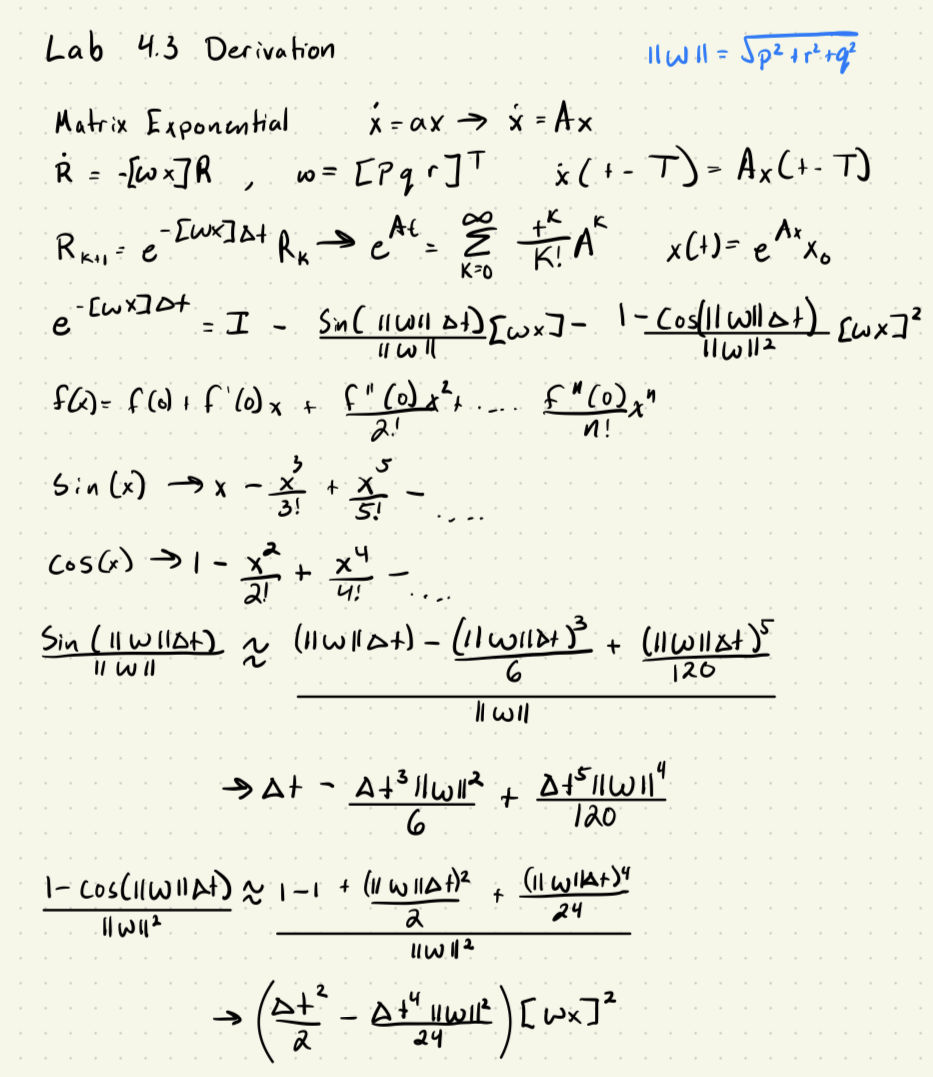 Lab 4.3 Derivation
||ω|| = √(p² + r² + q²)
Matrix Exponential ẋ = ax → ẋ = Ax
Ṙ = -[ωx]R , ω = [P q r]ᵀ ẋ(t - T) = Ax(t - T)
R_{K+1} = e^{-[ωx]Δt} R_K → e^{At} = Σ_{K=0}^{∞} t^K/K! A^K x(t) = e^{Ax} x₀
e^{-[ωx]Δt} = I - Sin(||ω||Δt)/||ω|| [ωx] - 1-Cos(||ω||Δt)/||ω||² [ωx]²
f(x) = f(0) + f'(0)x + f''(0)x²/2! + .... fⁿ(0)/n! xⁿ
Sin(x) → x - x³/3! + x⁵/5! - ....
Cos(x) → 1 - x²/2! + x⁴/4! - ....
Sin(||ω||Δt)/||ω|| ≈ ((||ω||Δt) - (||ω||Δt)³/6 + (||ω||Δt)⁵/120)/||ω||
→ Δt - Δt³||ω||²/6 + Δt⁵||ω||⁴/120
1-Cos(||ω||Δt)/||ω||² ≈ (1-1 + (||ω||Δt)²/2 + (||ω||Δt)⁴/24)/||ω||²
→ (Δt²/2 - Δt⁴||ω||²/24)[ωx]²